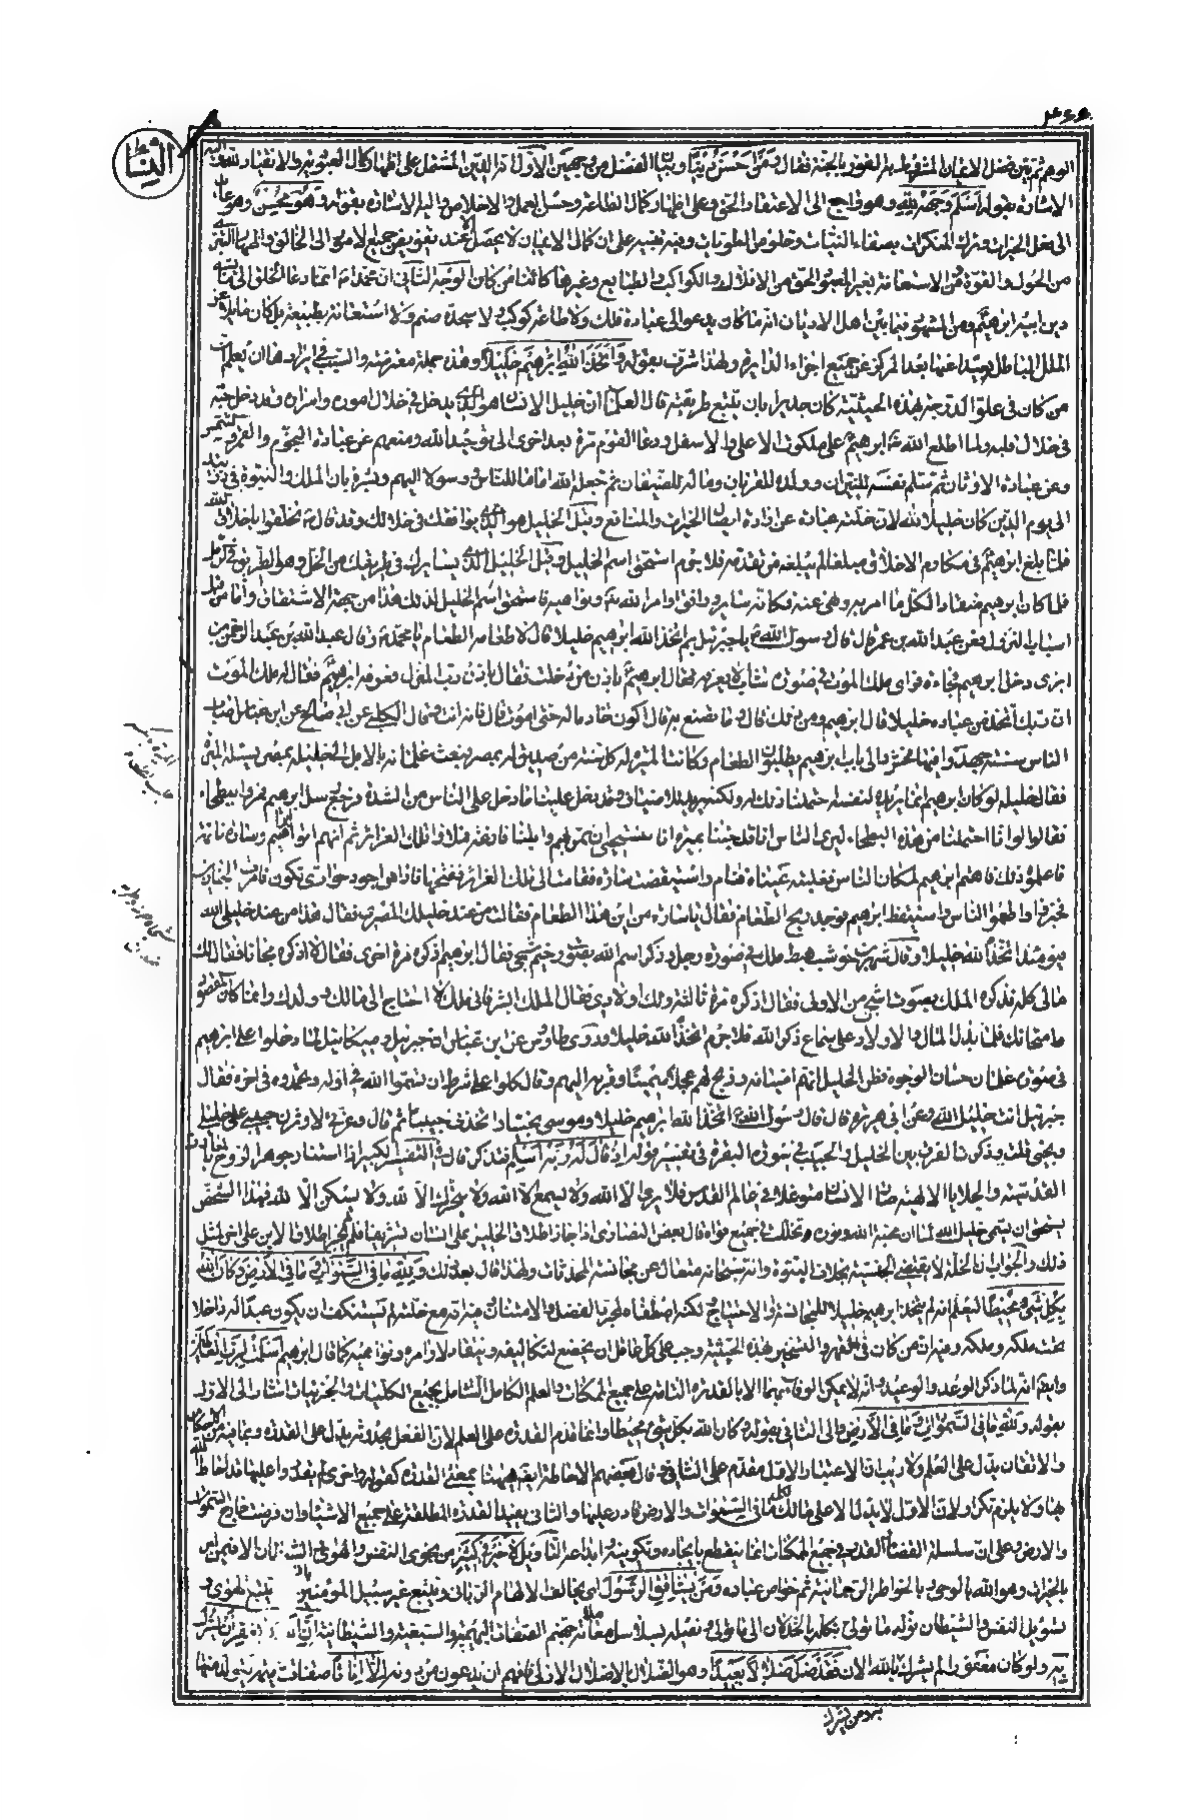 النسا
اليوم ثم بين فضل الايمان المشروط به الفوز بالجنة فقال ومن احسن دينا وبيان الفضل من وجهين الاول ان الدين المشتمل على اظهار كمال العبودية والانقياد لله
الاشارة بقوله اسلم وجهه لله وهو راجع الى الاعتقاد الحق وعلى اظهار كمال الطاعة وحسن العمل والاخلاص واليه الاشارة بقوله وهو محسن وهو
الى فعل الخيرات وترك المنكرات بصفاء النيات وخلوص الطويات وفيه تنبيه على ان كمال الايمان لا يحصل الا عند تفويض جميع الامور الى الخالق واظهار التبري
من الحول والقوة من الاستعانة بغير المعبود الحق من الافلاك والكواكب والطبائع وغيرها كائنا من كان الوجه الثاني ان محمدا انما دعا الخلق الى
دين ابيه ابرهيم ومن المشهور فيما بين اهل الاديان انه ما كان يدعو الى عبادة فلك ولا طاعة كوكب ولا سجدة صنم ولا استعانة بطبيعة بل كان مائلا عن
الملل الباطلة بعيدا عنها بعد المركز عن جميع اجزاء الدائرة ولهذا شرف بقوله واتخذ الله ابرهيم خليلا وهذه جملة معترضة والسبب في ايرادها ان يعلم ان
من كان في علو الدرجة بهذه الحيثية كان جديرا بان يتبع طريقته قال العلماء ان خليل الانسان هو الذي يدخل في خلال اموره واسراره وقد دخل حبه
في خلال قلبه ولما اطلع الله ابرهيم على ملكوت الاعلى والاسفل ودعا القوم مرة بعد اخرى الى توحيد الله ومنعهم عن عبادة النجوم والقمر والشمس
وعن عبادة الاوثان ثم سلم نفسه للنيران وولده للقربان وماله للضيفان ثم جعله الله اماما للناس ورسولا اليهم وبشره بان الملك والنبوة في ذريته
الى يوم الدين كان خليلا لله لان خلة الله عبده عن ارادة ايصال الخيرات والمنافع وقيل الخليل هو الذي يوافقك في خلالك وقد قال تخلقوا باخلاق الله
فلما بلغ ابرهيم في مكارم الاخلاق مبلغا لم يبلغه من تقدمه فلا جرم استحق اسم الخليل وقيل الخليل الذي يسايرك في طريقك من الخل وهو الطريق في الرمل
فلما كان ابرهيم منقادا لكل ما امر به ونهى عنه فكانه ساير ووافق اوامر الله ونواهيه فاستحق اسم الخليل لذلك هذا من جهة الاشتقاق واما من قبل
اسباب النزول فعن عبد الله بن عمر قال قال رسول الله يا جبرئيل بم اتخذ الله ابرهيم خليلا قال لاطعامه الطعام يا محمد وقال عبد الله بن عبد الرحمن بن
ابزى دخل ابرهيم فجاءة فراى ملك الموت في صورة شاب لا يعرفه فقال ابرهيم باذن من دخلت فقال باذن رب المنزل فعرفه ابرهيم فقال له ملك الموت
ان ربك اتخذ من عباده خليلا قال ابرهيم ومن ذلك قال وما تصنع به قال اكون خادما له حتى اموت قال فانه انت وقال الكلبي عن ابي صالح عن ابن عباس اصاب
الناس سنة جهدوا فيها فحشروا الى باب ابرهيم يطلبون الطعام وكانت الميرة له كل سنة من صديق له بمصر فبعث غلمانه بالابل الى خليله بمصر يسئله الميرة
فقال خليله لو كان ابرهيم انما يريده لنفسه احتملنا ذلك له ولكنه يريد للاضياف وقد دخل علينا ما دخل على الناس من الشدة فرجع رسل ابرهيم فمروا ببطحاء
فقالوا لو انا احتملنا من هذه البطحاء ليرى الناس انا قد جئنا بميرة انا نستحيي ان نمر بهم وابلنا فارغة فملاوا تلك الغرائر ثم انهم اتوا ابرهيم وسارة نائمة
فاعلموه ذلك فاهتم ابرهيم لمكان الناس فغلبته عيناه فنام واستيقظت سارة فقامت الى تلك الغرائر ففتحتها فاذا هي اجود حوارى تكون فامرت الخبازين
فخبزوا واطعموا الناس واستيقظ ابرهيم فوجد ريح الطعام فقال يا سارة من اين هذا الطعام فقالت من عند خليلك المصري فقال هذا من عند خليلي الله
فيومئذ اتخذ الله خليلا وقال شهر بن حوشب هبط ملك في صورة رجل وذكر اسم الله بصوت رخيم شجي فقال ابرهيم اذكره مرة اخرى فقال لا اذكره مجانا فقال لك
مالي كله فذكره الملك بصوت اشجى من الاول فقال اذكره مرة ثالثة ولك اولادي فقال الملك ابشر فاني ملك لا احتاج الى مالك وولدك وانما كان المقصود
امتحانك فلما بذل المال والاولاد على سماع ذكر الله فلا جرم اتخذ الله خليلا وروى طاوس عن ابن عباس ان جبرئيل وميكائيل لما دخلوا على ابرهيم
في صورة غلمان حسان الوجوه فظن الخليل انهم اضيافه وذبح لهم عجلا سمينا وقربه اليهم وقال كلوا على شرط ان تسموا الله في اوله وتحمدوه في اخره فقال
جبرئيل انت خليل الله وعن ابي هريرة قال قال رسول الله اتخذ الله ابرهيم خليلا وموسى نجيا واتخذني حبيبا ثم قال وعزتي لاوثرن حبيبي على خليلي
ونجيي قلت وذكرنا الفرق بين الخليل والحبيب في سورة البقرة في تفسير قوله اذ قال له ربه اسلم فتذكر قال في التفسير الكبير اذا استنار جوهر الروح بالمعارف
القدسية والجلايا الالهية صار الانسان متوغلا في عالم القدس فلا يرى الا الله ولا يسمع الا الله ولا يتحرك الا لله ولا يسكن الا لله فهذا الشخص
يستحق ان يسمى خليل الله لما ان محبة الله ونوره تخلل في جميع قواه قال بعض النصارى اذا جاز اطلاق الخليل على انسان تشريفا فلم لم يجز اطلاق الابن على اخر لمثل
ذلك والجواب ان الخلة لا يقتضي الجنسية بخلاف البنوة وانه سبحانه متعال عن مجانسة المحدثات ولهذا قال بعد ذلك ولله ما في السموات وما في الارض وكان الله
بكل شيء محيطا ليعلم انه لم يتخذ ابرهيم خليلا للمجانسة والاحتياج لكنه اصطفاه لمجرد الفضل والامتنان وفيه انه مع خلته لم يستنكف ان يكون عبدا له داخلا
تحت ملكه وملكه وفيه ان من كان في القهر والتسخير بهذه الحيثية وجب على كل عاقل ان يخضع لتكاليفه وينقاد لاوامره ونواهيه كما قال ابرهيم اسلمت لرب العالمين
وايضا انه لما ذكر الوعد والوعيد وانه لا يمكن الوفاء بهما الا بالقدرة التامة على جميع الممكنات والعلم الكامل الشامل لجميع الكليات والجزئيات اشار الى الاول
بقوله ولله ما في السموات وما في الارض والى الثاني بقوله وكان الله بكل شيء محيطا وانما قدم القدرة على العلم لان الفعل بحدوثه يدل على القدرة وبما فيه من الاحكام
والاتقان يدل على العلم ولا ريب ان الاعتبار الاول مقدم على الثاني وقال بعضهم الاحاطة ههنا بمعنى القدرة كقوله واخرى لم تقدروا عليها قد احاط الله
بها ولا يلزم تكرار لان الاول لا يدل الا على مالك لكل ما في السموات والارض قادر عليها والثاني يفيد القدرة المطلقة على جميع الاشياء وان فرضت خارج السموات
والارض وعلى ان سلسلة القضاء والقدر في جميع الممكنات انما ينقطع بايجاده وتكوينه وابداعه التأويل لا خير في كثير من نجوى النفس والهوى
بالخيرات وهو الله بالوحي وبالخواطر الرحمانية ثم خواص عباده ومن يشاقق الرسول اي يخالف الالهام الرباني ويتبع غير سبيل المؤمنين يتبع الهوى و
تسويل النفس والشيطان نوله ما تولى نكله بالخذلان الى ما تولى ونصله بسلاسل معاملاته جهنم الصفات البهيمية والسبعية والشيطانية ان الله لا يغفر ان يشرك
به ولو كان مغفرة لم يشرك بالله الان فقد ضل ضلالا بعيدا وهو الضلال بالاضلال الازلي فافهم ان يدعون من دونه الا اناثا صفات ذميمة يتولد منها